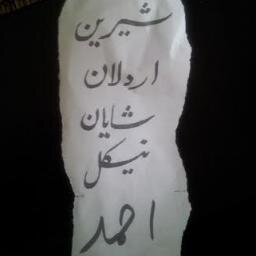 شیرین
اردلان
شایان
نیکل
احمد